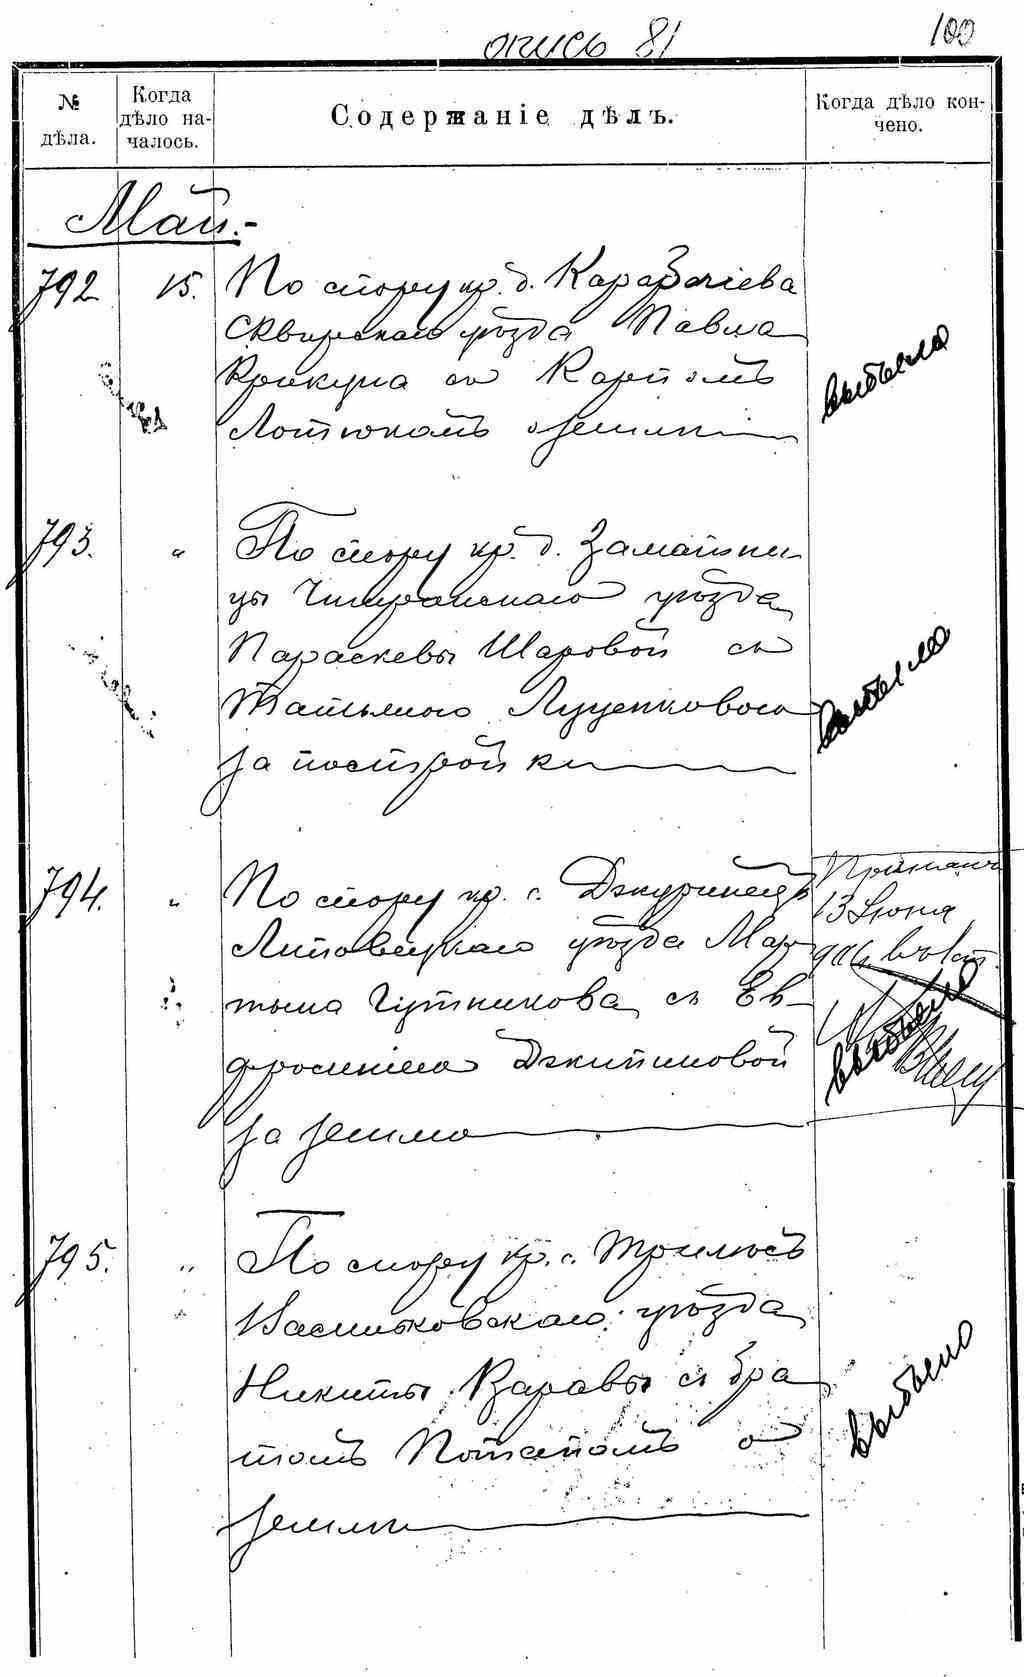 опись 81
100
№ дѣла.
Когда дѣло началось.
Содержаніе дѣлъ.
Когда дѣло кончено.
Май.-
792 15. По спору кр. д. Карабачіева
Сквирскаго уѣзда Павла
Крикуна съ Карпомъ
Лотюкомъ о земли
выбыло
793. " По спору кр. д. Замятни-
цы Чигиринскаго уѣзда
Параскевы Шаровой съ
Татьяною Луценковою
за постройки
выбыло
794. " По спору кр. с. Джуринецъ
Липовецкаго уѣзда Мар-
тына Гутникова съ Ев-
фросиніею Джитиловой
за землю
13 Іюня
выбыло
795. " По спору кр. с. Трилѣсъ
Васильковскаго уѣзда
Никиты Варавы съ бра
томъ Потапомъ о
земли
выбыло